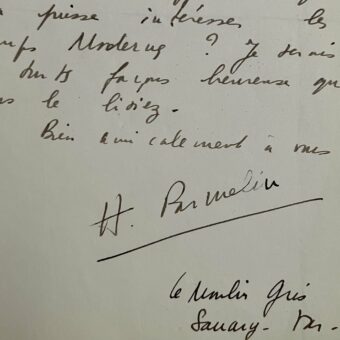 puisse intéresser les
Temps Modernes ? Je serais
façon heureuse que
le lisiez.
Bien amicalement à vous
H. Parmelin
Le Moulin Gris
Sanary - Var -